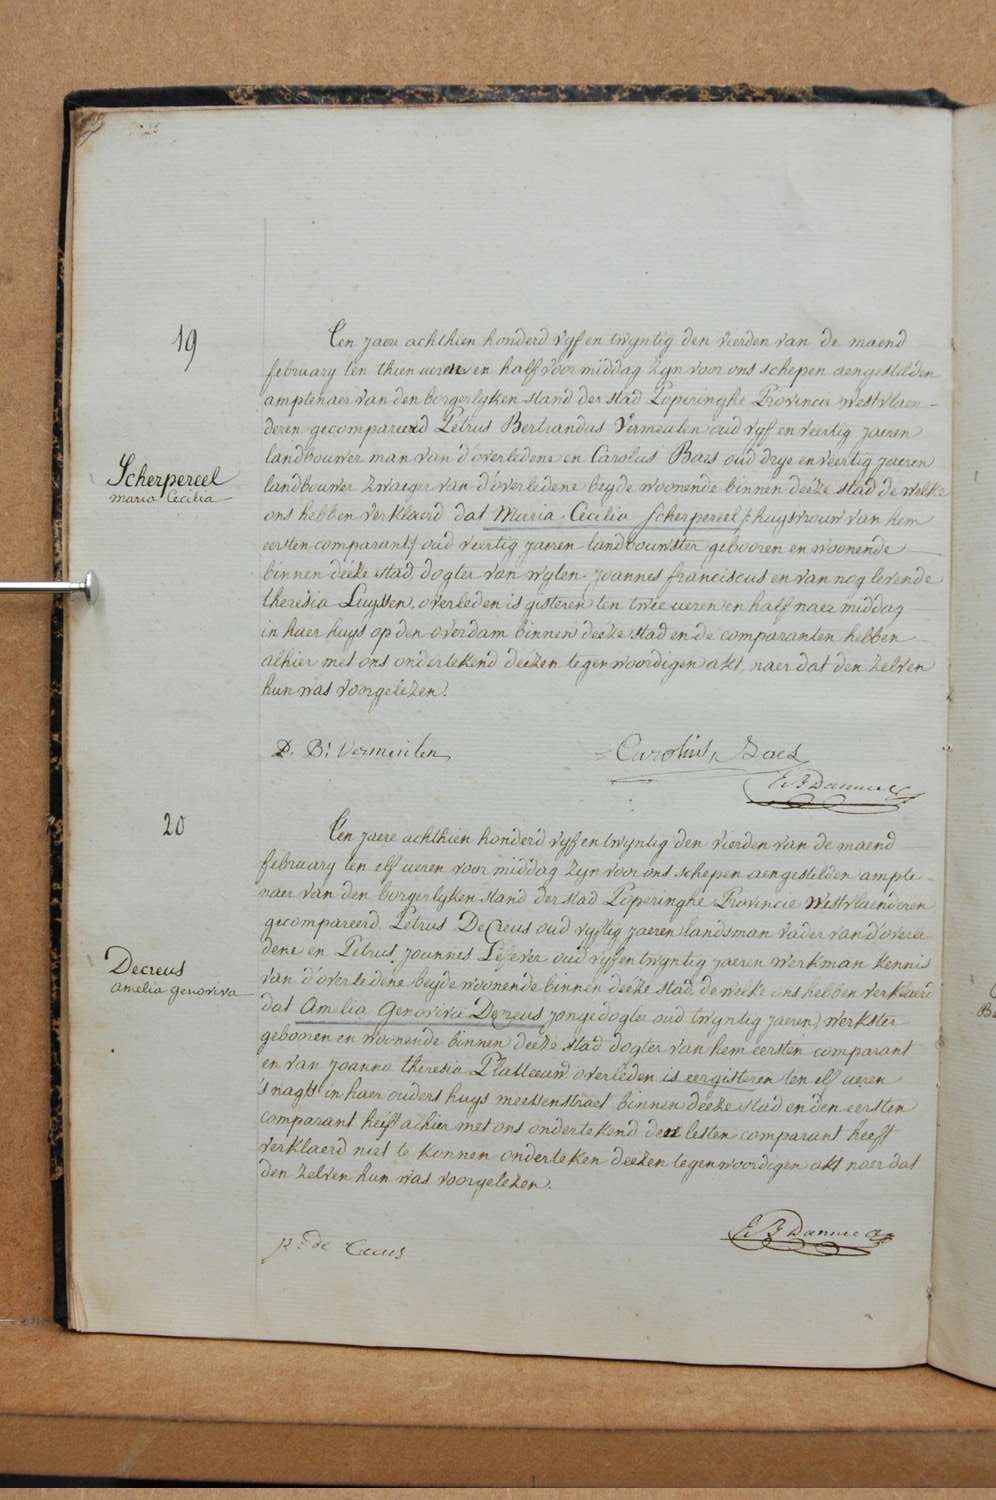 19
Ten jaere achthien honderd vyf en twyntig den vierden van de maend
february ten thien ueren en half voor middag zyn voor ons schepen aengestelden
amptenaer van den borgerlyken stand der stad Poperinghe Provincie Westvlaen-
deren gecompareerd Petrus Bertrandus Vermeulen oud vyf en veertig jaeren
landbouwer man van d'overledene en Carolus Baes oud drye en veertig jaeren
Scherpereel
maria Cecilia
landbouwer zwaeger van d'overledene beyde woonende binnen deeze stad de welke
ons hebben verklaerd dat Maria Cecilia Scherpereel (huysvrouw van hem
eersten comparant) oud veertig jaeren landbouwster gebooren en woonende
binnen deeze stad, dogter van wylen joannes franciscus en van nog levende
theresia Luyssen, overleden is gisteren ten twee ueren en half naer middag
in haer huys op den overdam binnen deeze stad en de comparanten hebben
alhier met ons ondertekend deezen tegenwoordigen akt, naer dat den zelven
hun was voorgelezen.
P. B. Vermeulen
Carolus Baes
20
Ten jaere achthien honderd vyf en twyntig den vierden van de maend
february ten elf ueren voor middag zyn voor ons schepen aengestelden ampte-
naer van den borgerlyken stand der stad Poperinghe Provincie Westvlaenderen
gecompareerd Petrus DeCreus oud vyftig jaeren landsman vader van d'overle
dene en Petrus joannes Lefever oud vyf en twyntig jaeren werkman kennis
Decreus
amelia genoviva
van d'overledene beyde woonende binnen deeze stad, de welke ons hebben verklaerd
dat Amelia Genoviva Decreus jongedogter oud twyntig jaeren, werkster
gebooren en woonende binnen deeze stad dogter van hem eersten comparant
en van joanna theresia Platteeuw, overleden is eergisteren ten elf ueren
's nagts in haer ouders huys meessenstraet binnen deeze stad en den eersten
comparant heeft alhier met ons ondertekend den lesten comparant heeft
verklaerd niet te konnen onderteken deezen tegenwoordigen akt naer dat
den zelven hun was voorgelezen.
p. de Creus